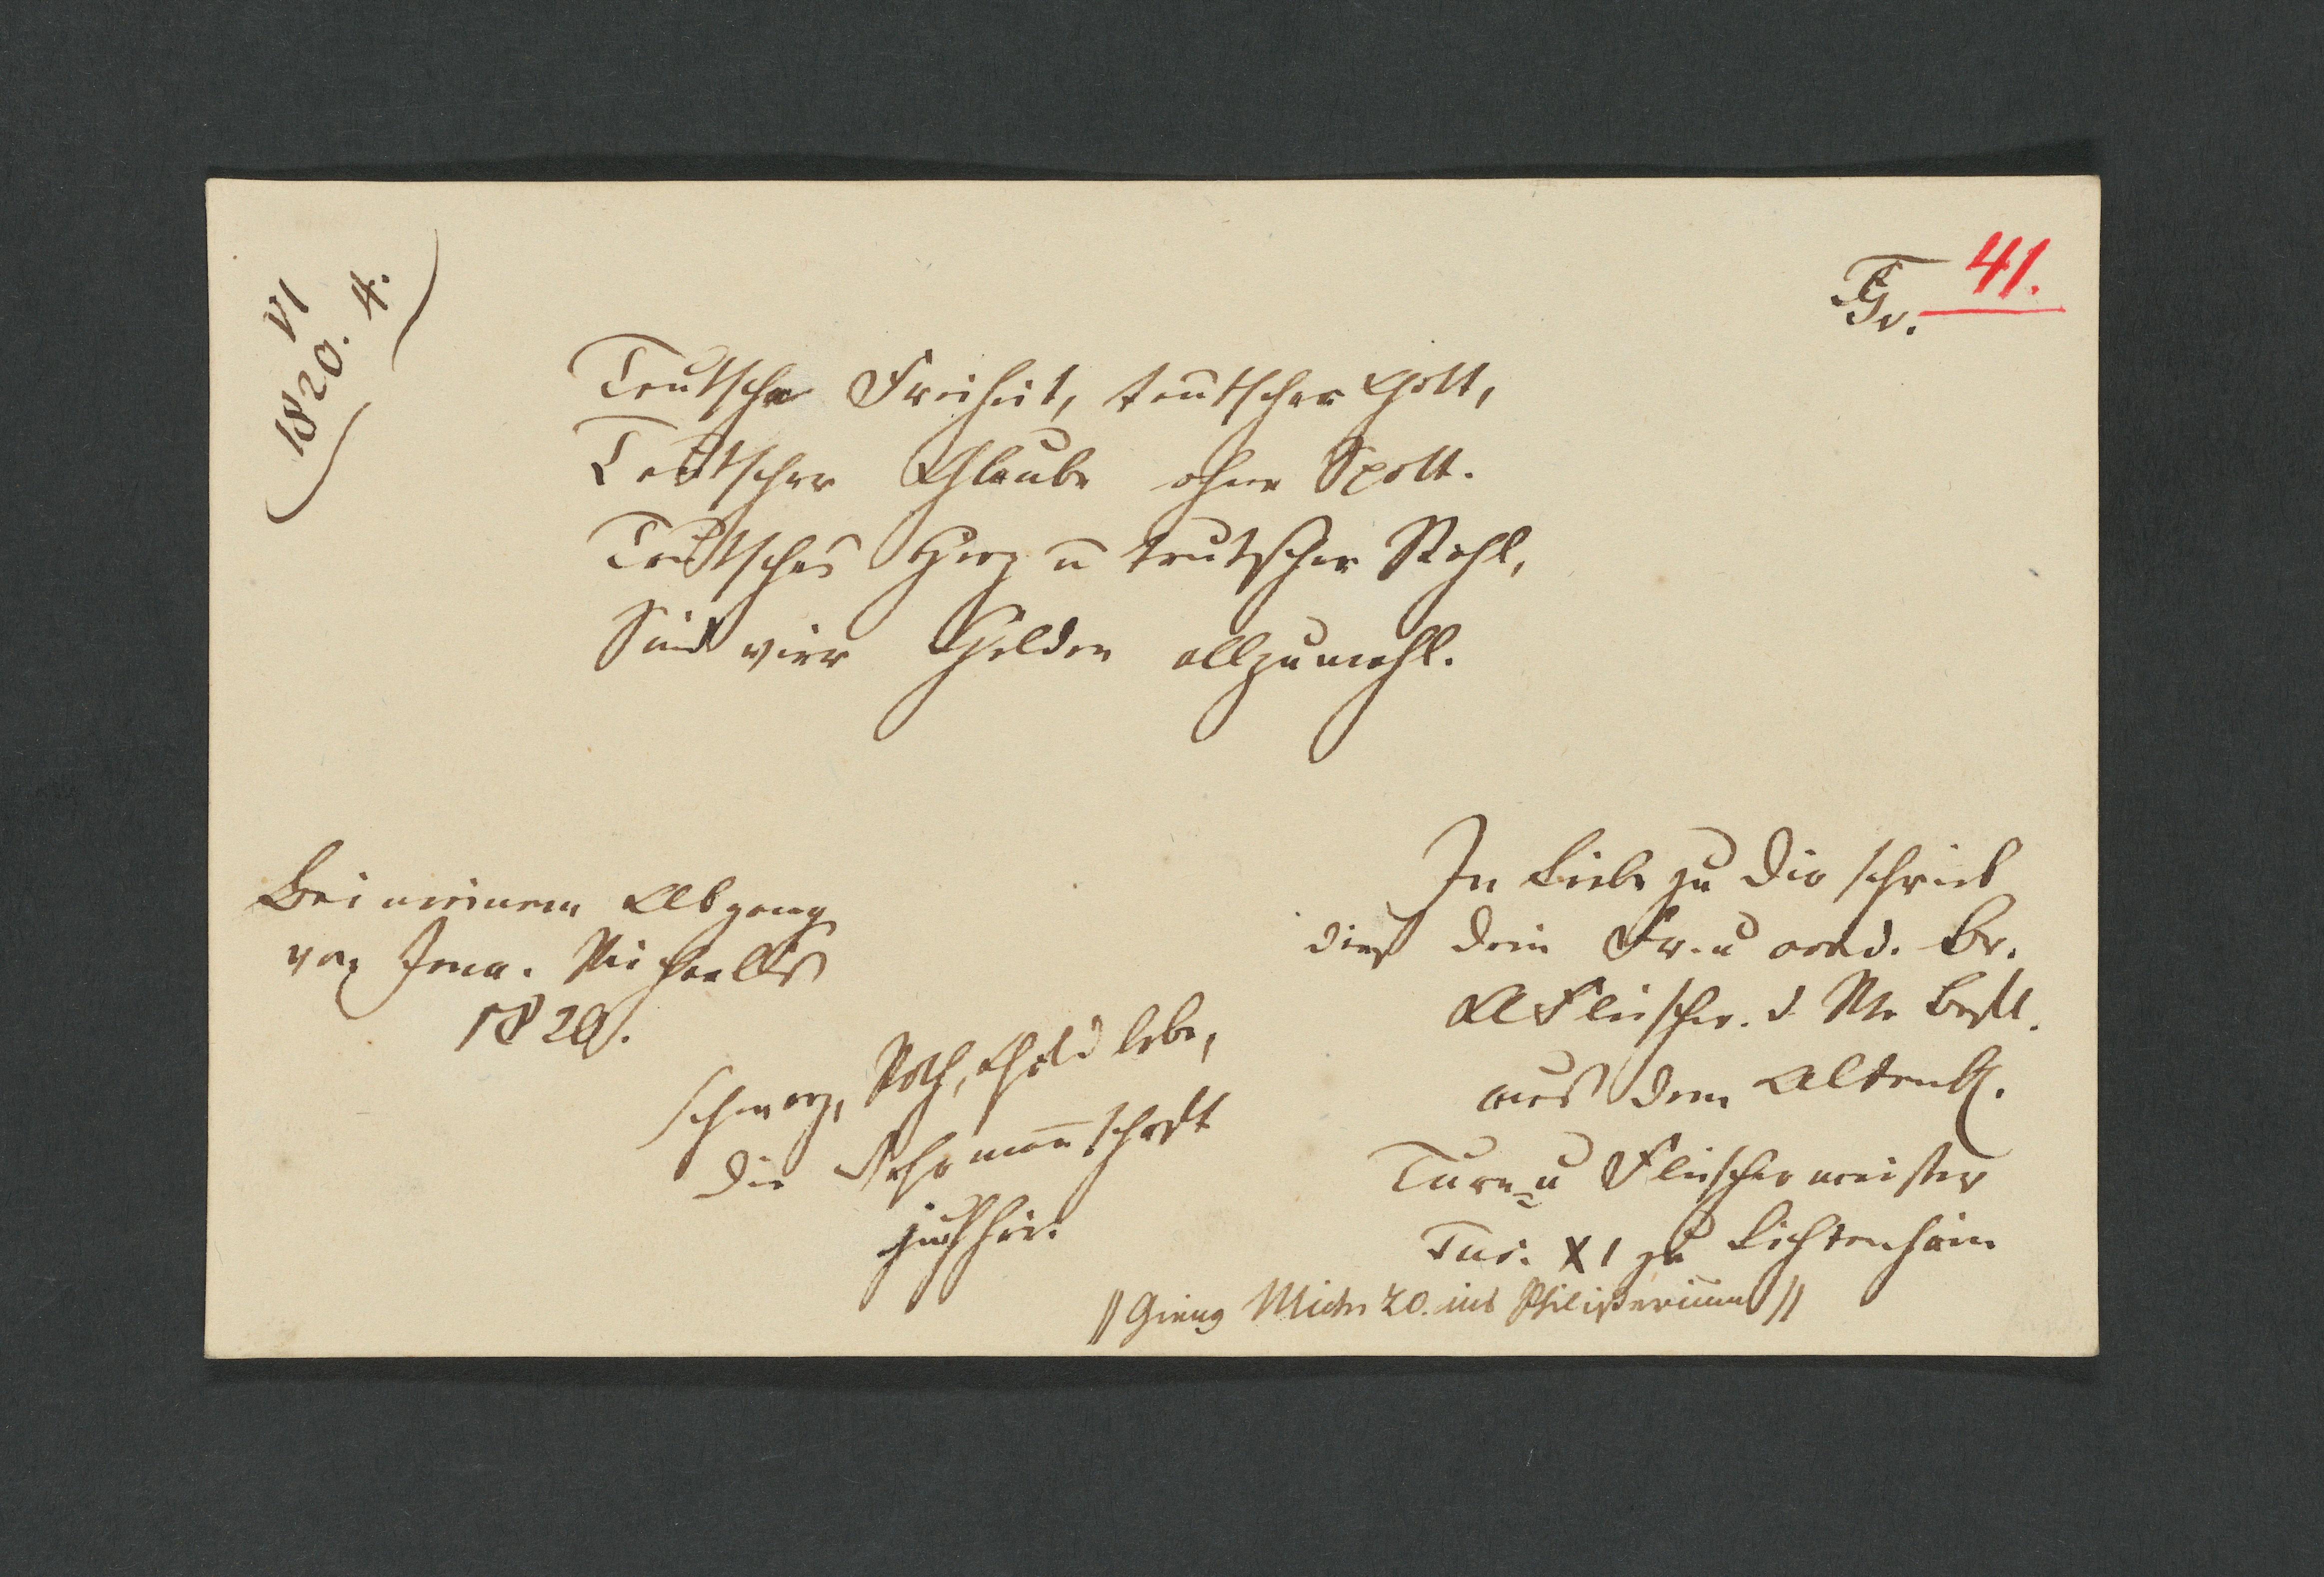 VI
1820. 4.
41.
Teutsche Freiheit, teutscher Gott,
Teutscher Glaube ohne Spott.
Teutsches Herz u teutscher Stahl,
Sind vier Helden allzumahl.
Bei meinem Abgang
von Jena. Michaelis
1820.
schwarz, Roth, Gold lebe,
die
juchhei!
In Liebe zu dir schrieb
dies dein Fr. u Br.
A Fleischer. d.
aus dem Altenb.
Turn- u Fleischermeister
Tus. XI zu Lichtenhain
//Gieng Mich. 20. ins Philisterium//